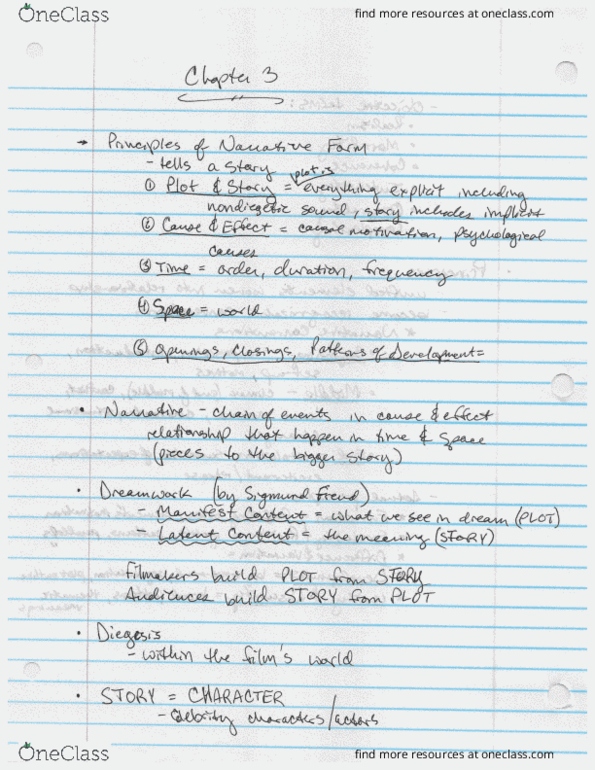 OneClass
find more resources at oneclass.com
Chapter 3
→ Principles of Narrative Form
- tells a story
plot is
① Plot & Story = everything explicit including
nondiegetic sound, story includes implicit
② Cause & Effect = causal motivation, psychological
causes
③ Time = order, duration, frequency
④ Space = world
⑤ Openings, Closings, Patterns of Development =
• Narrative - chain of events in cause & effect
relationship that happen in time & space
(pieces to the bigger story)
• Dreamwork (by Sigmund Freud)
- Manifest Content = what we see in dream (PLOT)
- Latent Content = the meaning (STORY)
Filmakers build PLOT from STORY
Audiences build STORY from PLOT
• Diegesis
- within the film's world
• STORY = CHARACTER
- Celebrity characters/actors
OneClass
find more resources at oneclass.com